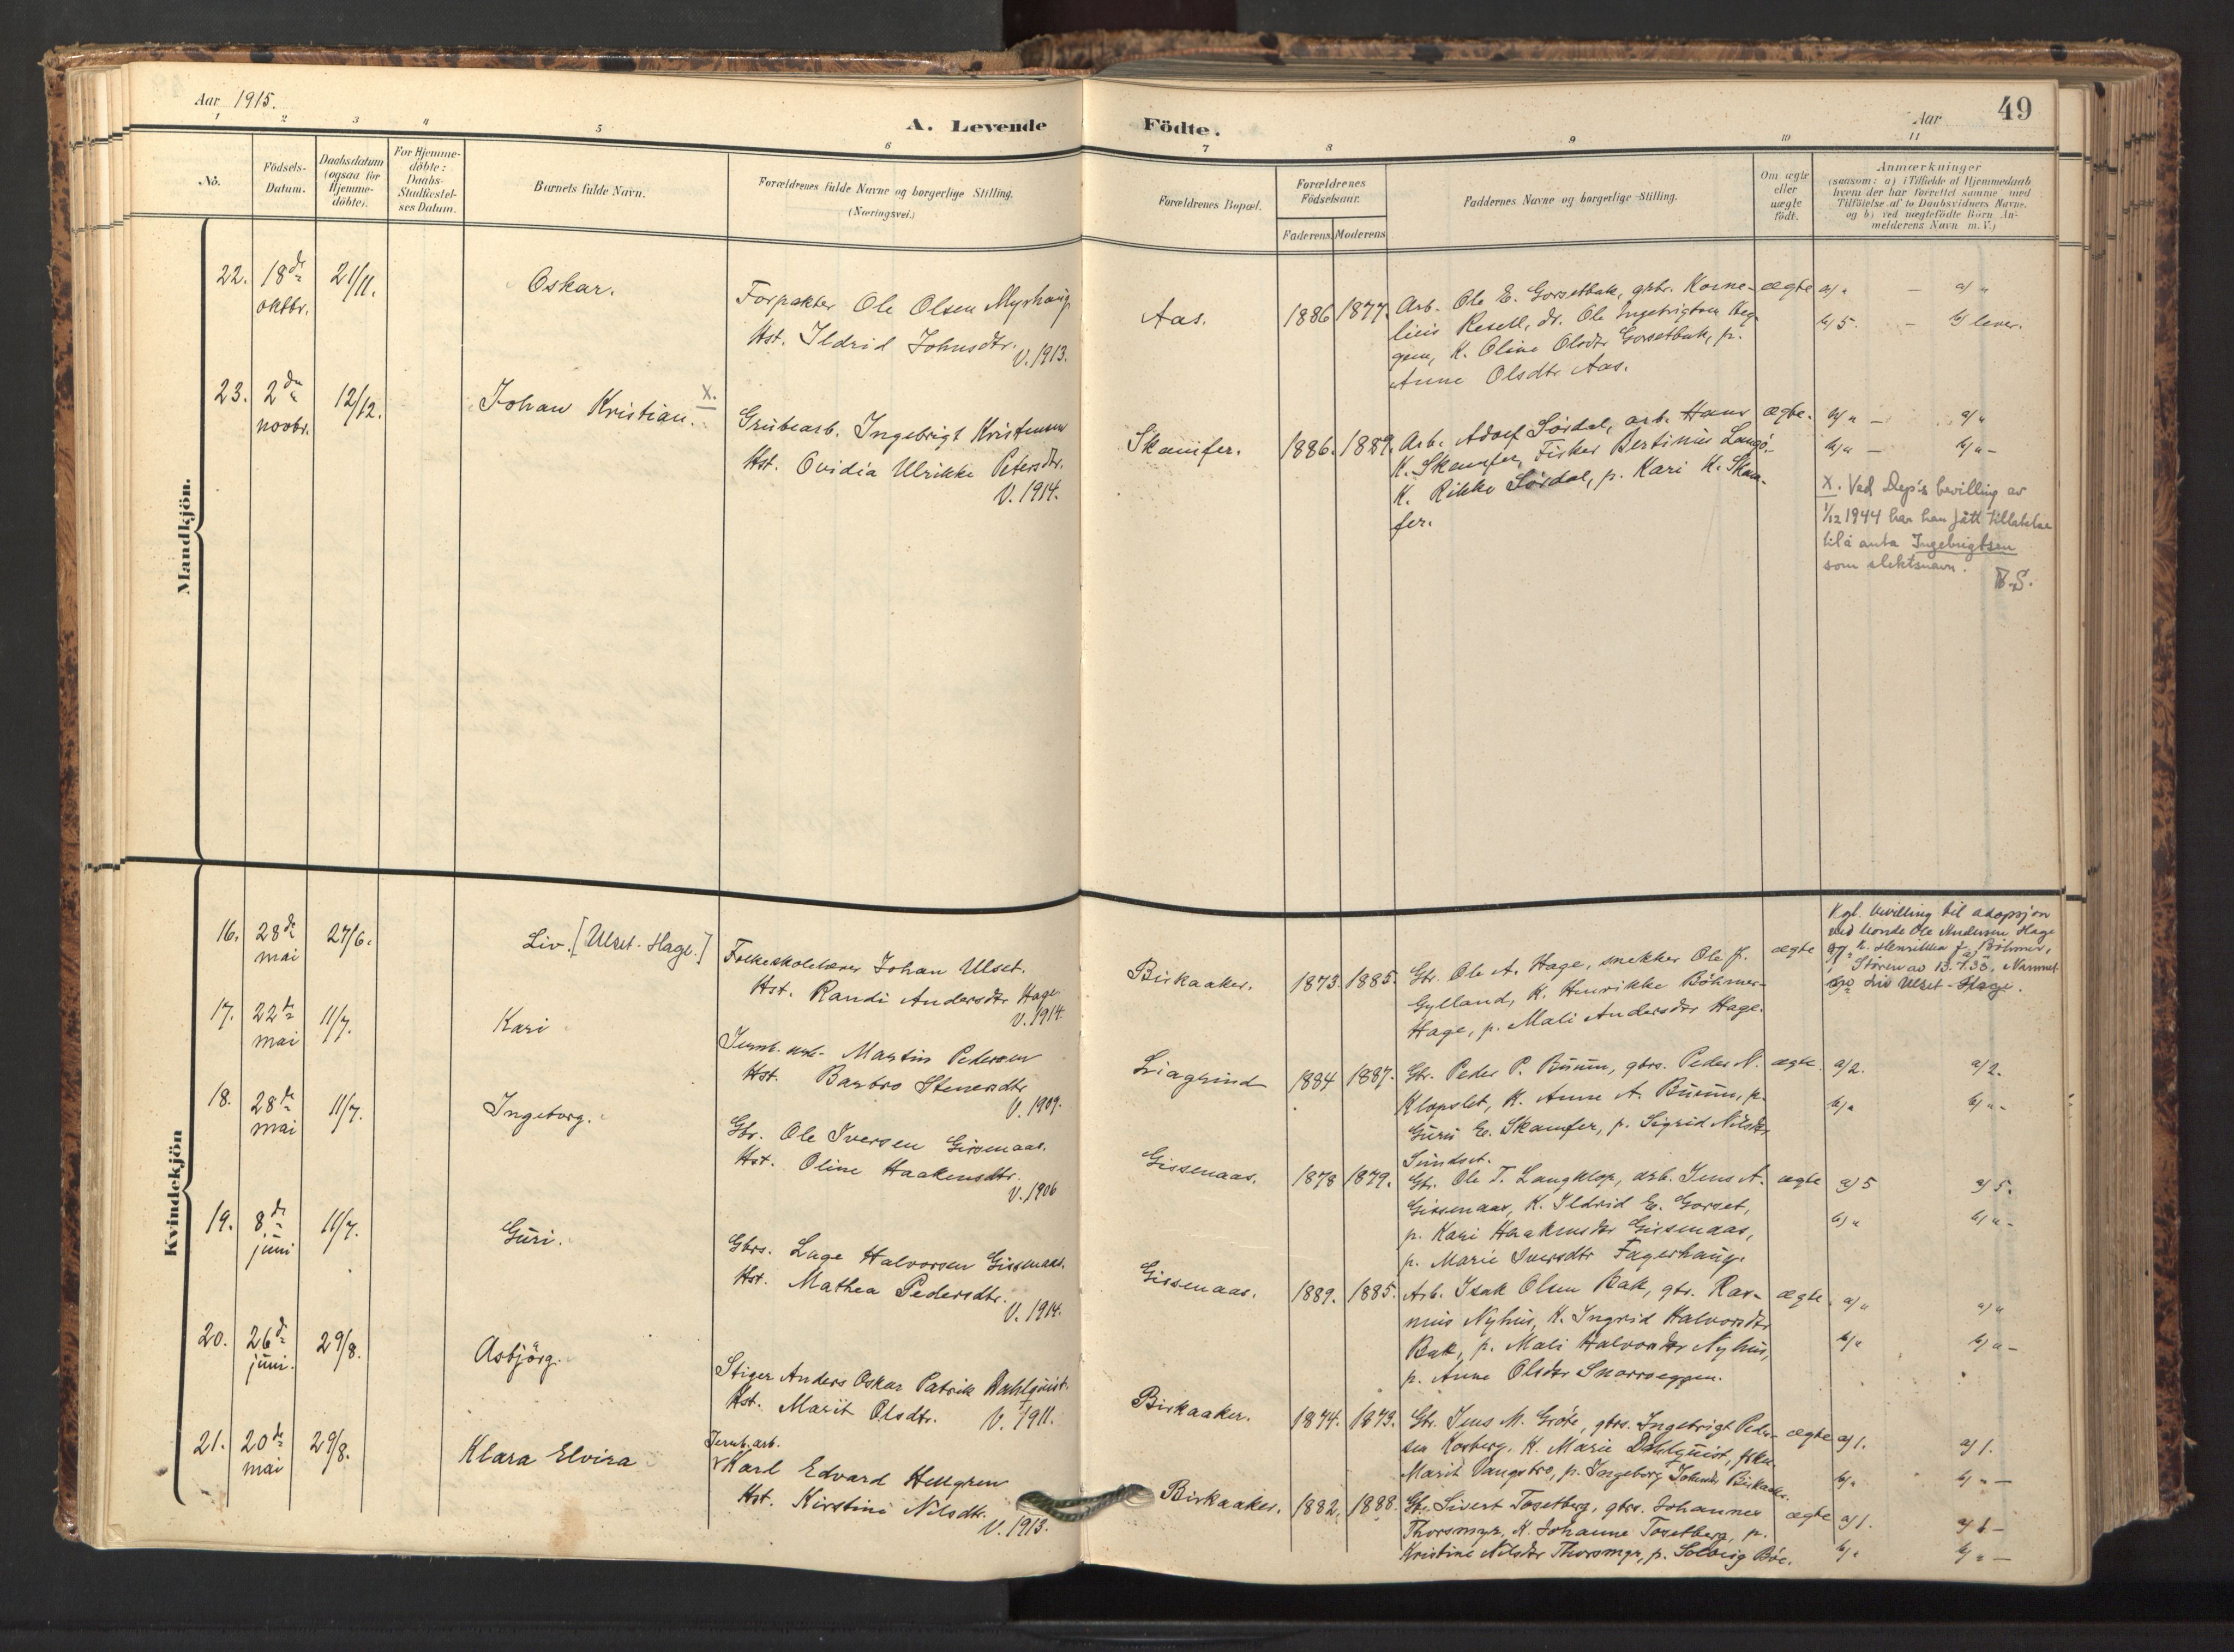 Aar 1915.
A. Levende Födte.
Aar
49
1 2 3 4 5 6 7 8 9 10 11
No.
Födsels-
Datum.
Daabsdatum
(ogsaa for
Hjemme-
döbte).
For Hjemme-
döbte:
Daabs-
Stadfæstel-
ses Datum.
Barnets fulde Navn.
Forældrenes fulde Navne og borgerlige Stilling.
(Næringsvei.)
Forældrenes Bopæl.
Forældrenes
Födselsaar.
Faderens. Moderens.
Faddernes Navne og borgerlige Stilling.
Om ægte
eller
uægte
født.
Anmærkninger
(saasom: a) i Tilfælde af Hjemmedaab
hvem der har forrettet samme, med
Tilföielse af to Daabsvidners Navne,
og b) ved uægtefödte Börn An-
melderens Navn m. V.)
Mandkjön.
22. 18de
oktbr.
21/11.
Oskar.
Forpakter Ole Olsen Myrhaug
Hst. Ildrid Johnsdtr.
V. 1913.
Aas.
1886 1877.
Arb. Ole E. Gorsetbak, gbr. Korne-
lius Resell, dr. Ole Ingebrigtsen Heg-
gem, K. Oline Olsdtr Gorsetbak, p.
Anne Olsdtr Aas.
ægte
a) " — a) "
b) 5. — b) lever.
23. 2den
novbr.
12/12.
Johan Kristian. x.
Grubearb. Ingebrigt Kristensen
Hst. Ovidia Ulrikke Petersdtr.
V. 1914.
Skamfer.
1886. 1889.
Arb. Adolf Sørdal, arb. Hans
K. Skamfer, Fisker Bertinius Langö,
K. Rikke Sørdal, p. Kari K. Skam-
fer.
ægte.
a) " — a) "
b) " — b) " -
X. Ved Dep's bevilling av
1/12 1944 har han fått tillatelse
til å anta Ingebrigtsen
som slektsnavn.
Kvindekjön
16. 28de
mai
27/6.
Liv. [Ulset-Hage.]
Folkeskolelærer Johan Ulset.
Hst. Randi Andersdtr Hage.
V. 1914.
Birkaaker.
1873. 1885.
Gbr. Ole A. Hage, snekker Ole J.
Gylland, K. Henrikke Böhmer-
Hage, p. Mali Andersdtr Hage.
ægte
Kgl. bevilling til adopsjon
ved bonde Ole Andersen Hage
og h. Henrikka f. Böhmer,
Støren av 13.7.38. Navnet
Liv Ulset-Hage.
17. 22de
mai
11/7.
Kari
Jernb. arb. Martin Pedersen
Hst. Barbro Stenersdtr
V. 1909.
Liagrind
1884 1887.
Gbr. Peder P. Buum, gbrs. Peder N.
Klopslet, K. Anne A. Buum, p.
Guru E. Skamfer, p. Sigrid Nilsdtr
Sundset.
ægte.
a) 2. a) 2.
b) " b) " -
18. 28de
mai
11/7.
Ingeborg.
Gbr. Ole Iversen Gissenaas.
Hst. Oline Haakensdtr.
V. 1906
Gissenaas.
1878 1879.
Gbr. Ole T. Langklop, arb. Jens A.
Gissenaas, K. Ildrid E. Gorset,
p. Kari Haakensdtr Gissenaas,
p. Marie Iversdtr Fagerhaug.
ægte
a) 5 a) 5.
b) " b) " -
19. 8de
juni
11/7.
Guri.
Gbrs. Lage Halvorsen Gissenaas.
Hst. Mathea Pedersdtr.
V. 1914.
Gissenaas.
1889. 1885.
Arb. Isak Olsen Bak, gbr. Ras-
mus Nyhus, K. Ingrid Halvorsdtr
Bak, p. Mali Halvorsdtr Nyhus,
p. Anne Olsdtr Snorroeggen.
ægte
a) " a) "
b) " b) " -
20. 26de
juni.
29/8.
Asbjörg.
Stiger Anders Oskar Patrik Dahlquist.
Hst. Marit Olsdtr. V. 1911.
Birkaaker.
1874. 1873.
Gbr. Jens M. Gröte, gbrs. Ingebrigt Peder-
sen Kosberg, K. Marie Dahlquist, frkn.
Marit Vangsbro, p. Ingeborg Johnsdtr Birkaaker.
ægte
a) 1. a) 1.
b) " b) " -
21. 20de
mai
29/8.
Klara Elvira
Jernb. arb.
Karl Edvard Hellgren
Hst. Kirstine Nilsdtr.
V. 1913.
Birkaaker.
1882. 1888.
Gbr. Sivert Tosetberg, gbrs. Johannes
Thorsmyr, K. Johanne Tosetberg, p.
Kristine Nilsdtr Thorsmyr, p. Solveig Böe.
ægte
a) 1. a) 1 -
b) " b) " -